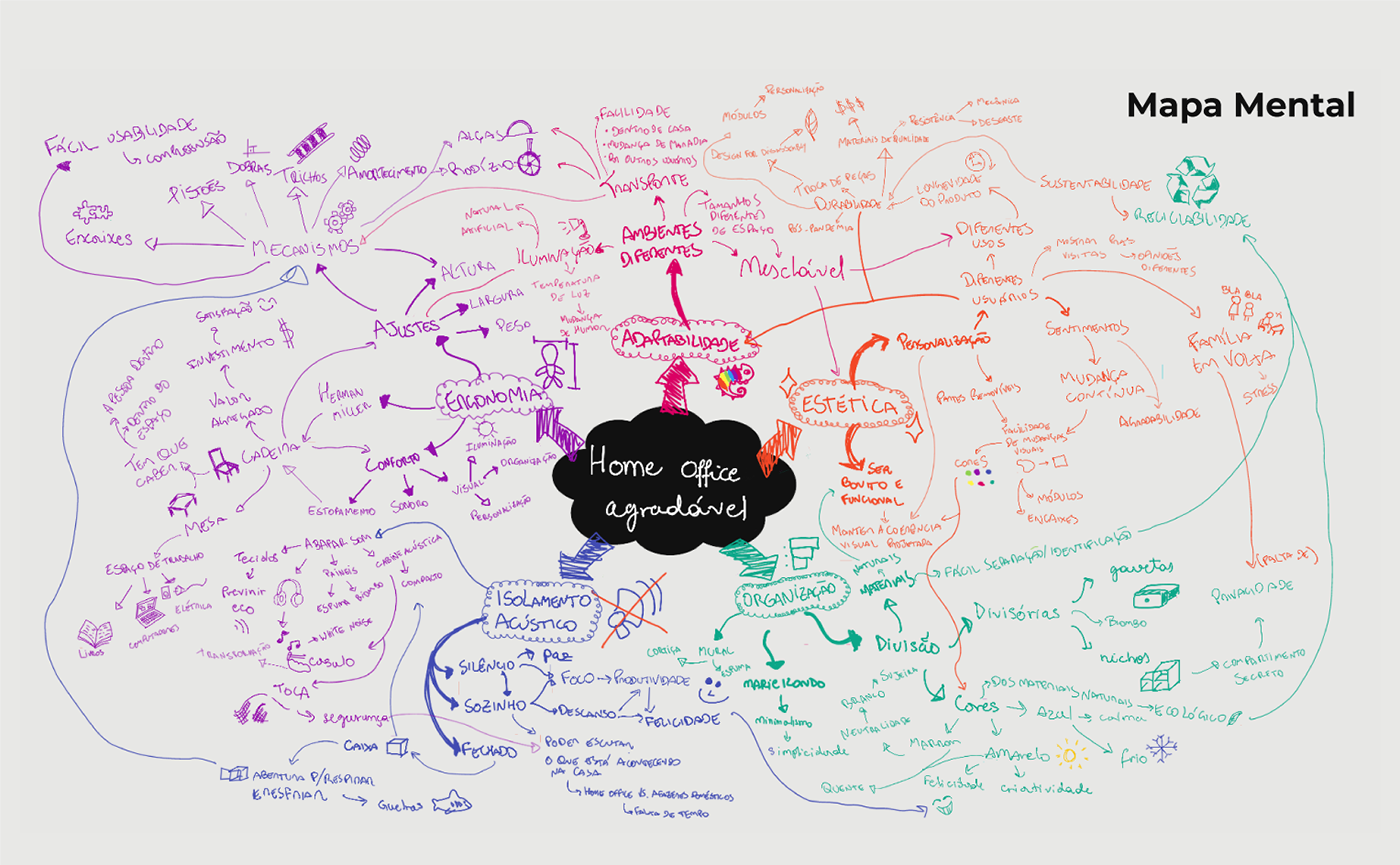 Mapa Mental
Home Office
agradável
ERGONOMIA
AJUSTES
ALTURA
LARGURA
PESO
MECANISMOS
ENCAIXES
PISTÕES
DOBRAS
TRILHOS
AMORTECIMENTO
RODÍZIO
ALÇAS
FÁCIL USABILIDADE
COMPREENSÃO
HERMAN
MILLER
CADEIRA
VALOR
AGREGADO
INVESTIMENTO
SATISFAÇÃO
TEM QUE
CABER
DENTRO DO
ESPAÇO
A PESSOA DENTRO
MESA
ESPAÇO DE TRABALHO
LIVROS
COMPUTADORES
ELÉTRICA
CONFORTO
ESTOFAMENTO
SONORO
VISUAL
ILUMINAÇÃO
ORGANIZAÇÃO
PERSONALIZAÇÃO
ADAPTABILIDADE
AMBIENTES
DIFERENTES
TRANSPORTE
FACILIDADE
• DENTRO DE CASA
• MUDANÇA DE MORADIA
• PRA OUTROS USUÁRIOS
TAMANHOS
DIFERENTES
DE ESPAÇO
Mesclável
ILUMINAÇÃO
NATURAL
ARTIFICIAL
TEMPERATURA
DE LUZ
MUDANÇA
DE HUMOR
ESTÉTICA
PERSONALIZAÇÃO
DIFERENTES
USUÁRIOS
DIFERENTES
USOS
LONGEVIDADE
DO PRODUTO
DURABILIDADE
PÓS-PANDEMIA
TROCA DE PEÇAS
DESIGN FOR DISASSEMBLY
MÓDULOS
PERSONALIZAÇÃO
$$$
MATERIAIS DE QUALIDADE
RESISTÊNCIA
MECÂNICA
DESGASTE
SUSTENTABILIDADE
RECICLABILIDADE
MOSTRAR PRAS
VISITAS
OPINIÕES
DIFERENTES
SENTIMENTOS
MUDANÇA
CONTÍNUA
AGRADABILIDADE
BLA BLA
FAMÍLIA
EM VOLTA
STRESS
(FALTA DE)
PRIVACIDADE
PARTES REMOVÍVEIS
FACILIDADE
DE MUDANÇAS
VISUAIS
CORES
MÓDULOS
ENCAIXES
SER
BONITO E
FUNCIONAL
MANTER A COERÊNCIA
VISUAL PROJETADA
ORGANIZAÇÃO
MURAL
CORTIÇA
ESPUMA
MARIE KONDO
minimalismo
simplicidade
Divisão
MATERIAIS
NATURAIS
FÁCIL SEPARAÇÃO/IDENTIFICAÇÃO
Divisórias
gavetas
Biombo
nichos
COMPARTIMENTO
SECRETO
Cores
DOS MATERIAIS NATURAIS
ECOLÓGICO
Azul
calma
frio
Amarelo
Felicidade
criatividade
QUENTE
MARROM
NEUTRALIDADE
BRANCO
SUJEIRA
ISOLAMENTO
ACÚSTICO
SILÊNCIO
PAZ
FOCO
PRODUTIVIDADE
SOZINHO
DESCANSO
FELICIDADE
FECHADO
PODER ESCUTAR
O QUE ESTÁ ACONTECENDO
NA CASA
HOME OFFICE VS. AFAZERES DOMÉSTICOS
FALTA DE TEMPO
ABAFAR SOM
Tecidos
Previnir
eco
PAINÉIS
ESPUMA
BIOMBO
CABINE ACÚSTICA
COMPACTO
WHITE NOISE
CASULO
TRANSFORMAÇÃO
TOCA
segurança
CAIXA
ABERTURA P/RESPIRAR
E RESFRIAR
Guelras